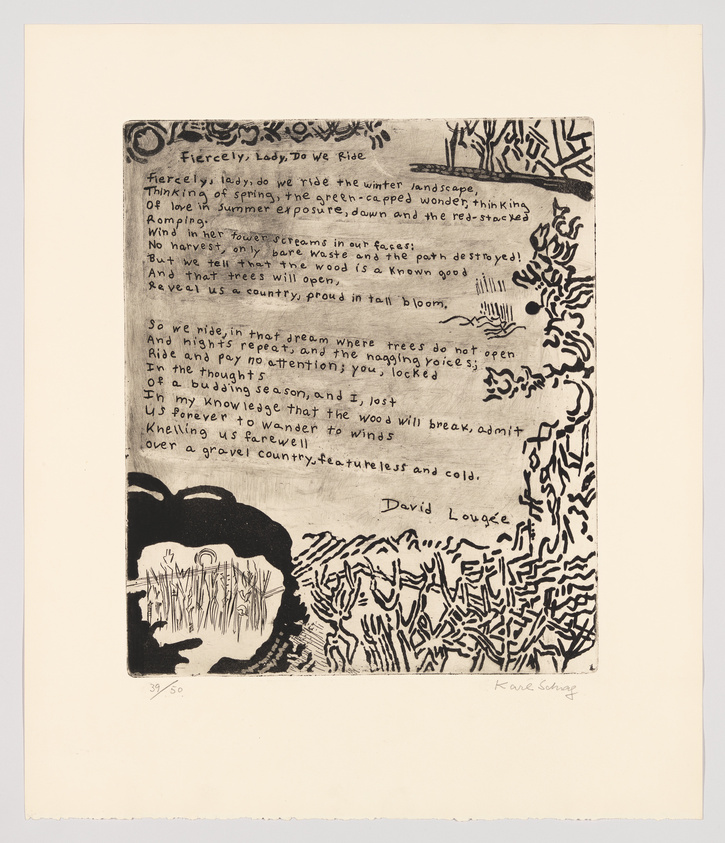 Fiercely, Lady, Do We Ride
Fiercely, lady, do we ride the winter landscape,
Thinking of spring, the green-capped wonder, thinking
Of love in summer exposure, dawn and the red-stacked
Romping.
Wind in her tower screams in our faces:
No harvest, only bare waste and the path destroyed!
But we tell that the wood is a known good
And that trees will open,
Reveal us a country, proud in tall bloom.
So we ride, in that dream where trees do not open
And nights repeat, and the nagging voices;
Ride and pay no attention; you, locked
In the thoughts
Of a budding season, and I, lost
In my knowledge that the wood will break, admit
Us forever to wander to winds
Knelling us farewell
Over a gravel country, featureless and cold.
David Lougée
39/50
Karl Schrag